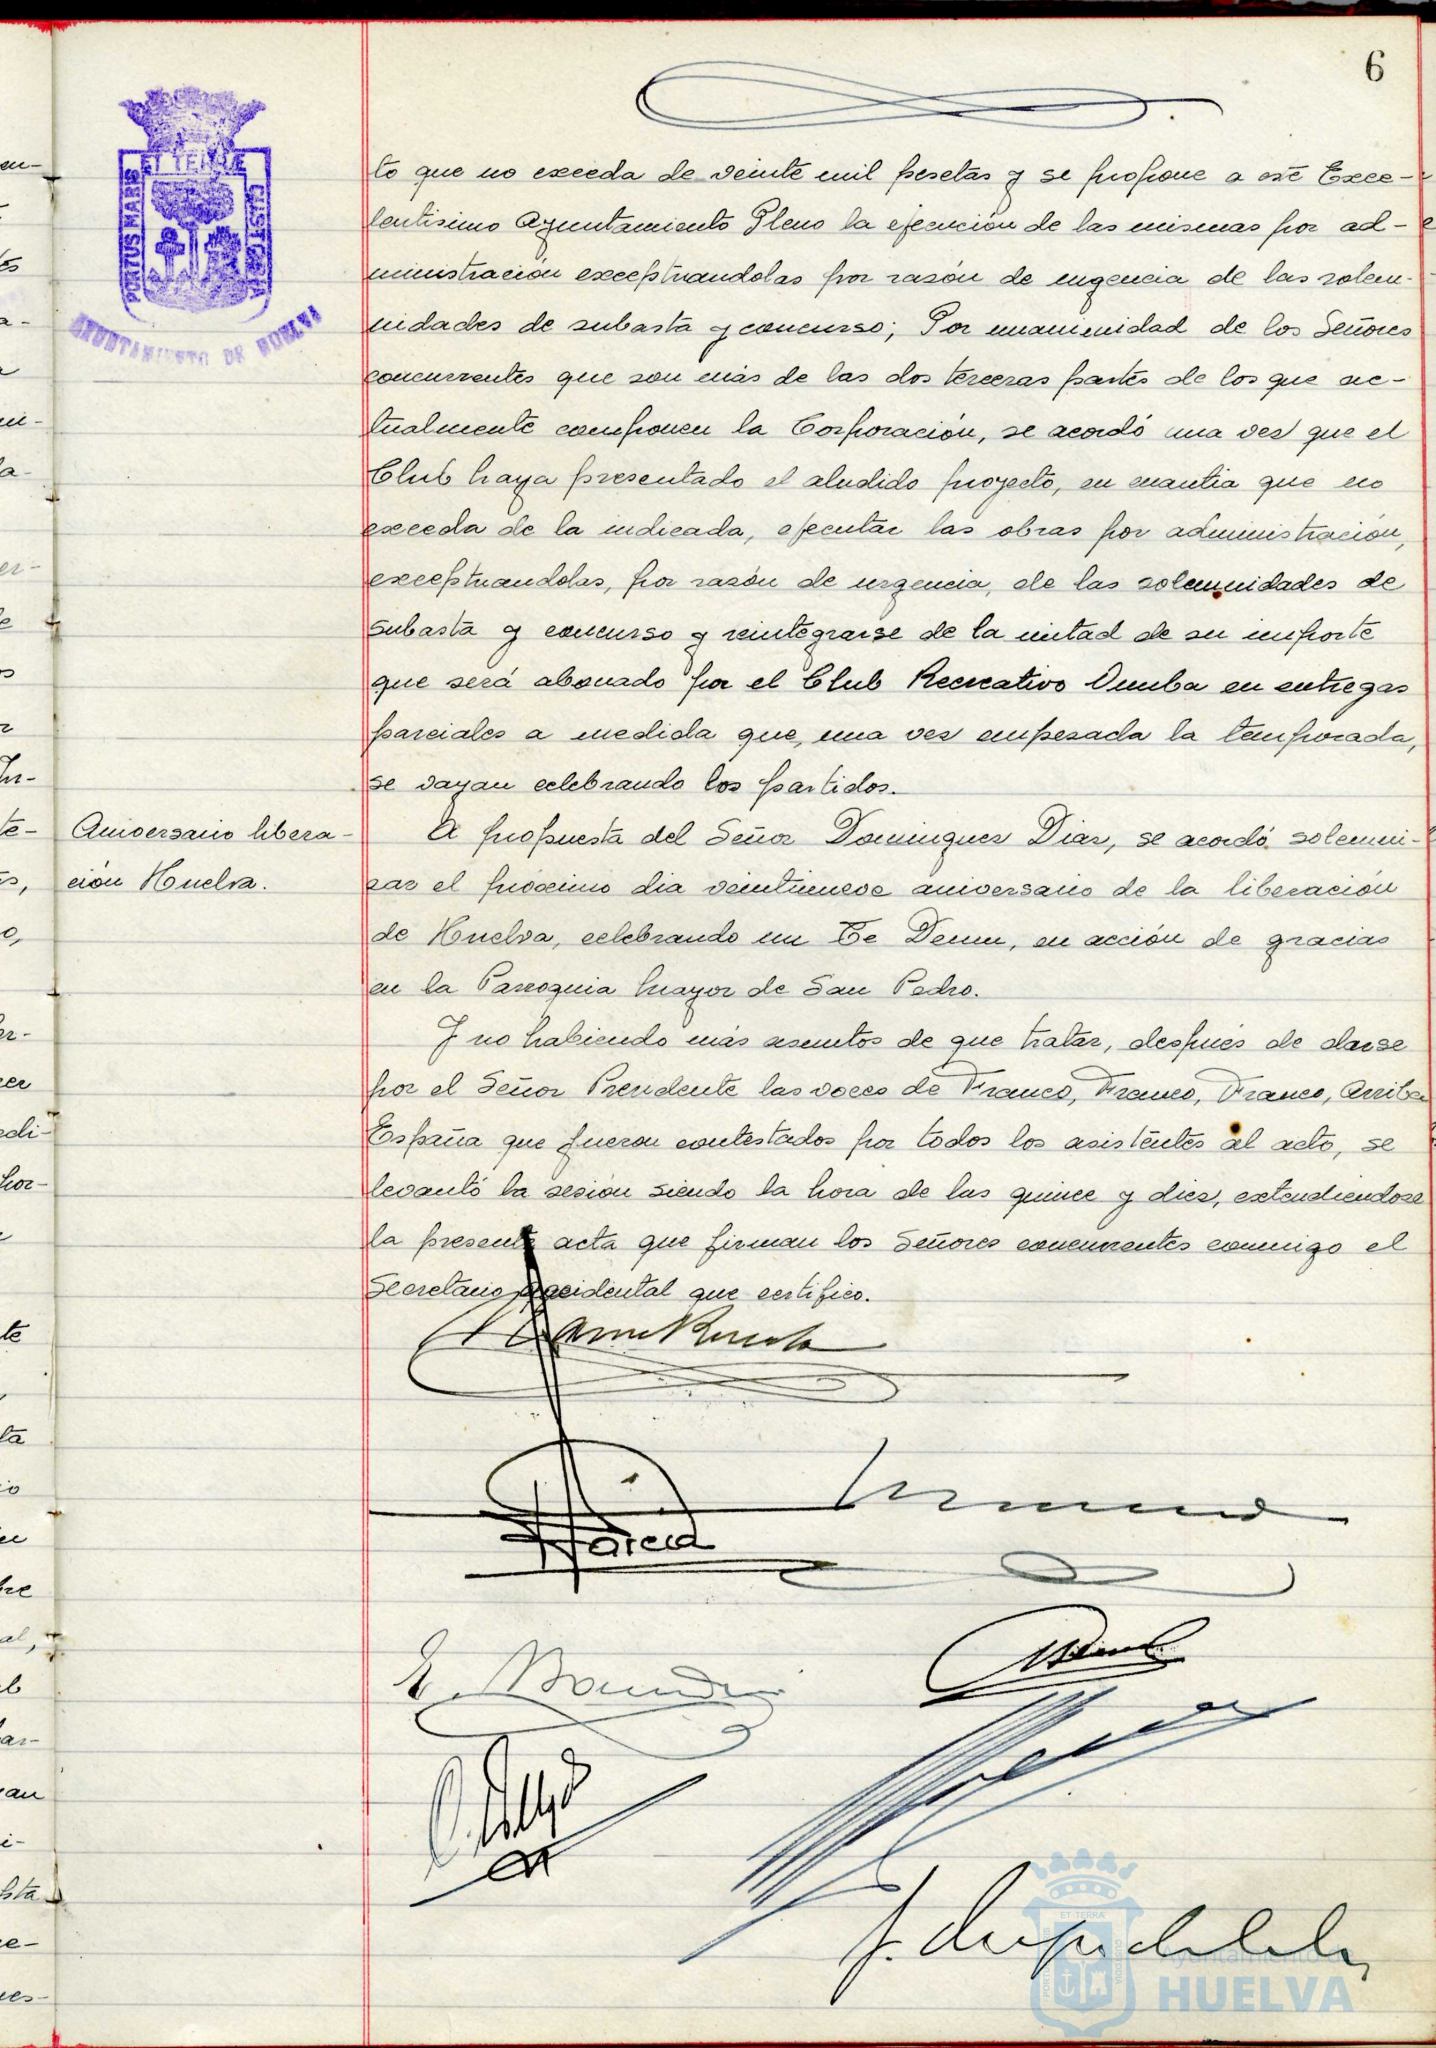 6
ET TERRÆ
PORTUS MARIS
CUSTODIA
AYUNTAMIENTO DE HUELVA
to que no exceda de veinte mil pesetas y se propone a este Exce-
lentisimo Ayuntamiento Pleno la ejecución de las mismas por ad-
ministración exceptuandolas por razón de urgencia de las solem-
nidades de subasta y concurso; Por unanimidad de los Señores
concurrentes que son más de las dos terceras partes de los que ac-
tualmente componen la Corporación, se acordó una ves que el
Club haya presentado el aludido proyecto, en cuantia que no
exceda de la indicada, ejecutar las obras por administración,
exceptuandolas, por razón de urgencia, de las solemnidades de
subasta y concurso y reintegrarse de la mitad de su importe
que será abonado por el Club Recreativo Onuba en entregas
parciales a medida que, una ves empesada la temporada,
se vayan celebrando los partidos.
Aniversario libera-
ción Huelva.
A propuesta del Señor Domingues Dias, se acordó solemni-
sar el próximo dia veintinueve aniversario de la liberación
de Huelva, celebrando un Te Deum, en acción de gracias
en la Parroquia Mayor de San Pedro.
Y no habiendo más asuntos de que tratar, después de darse
por el Señor Presidente las voces de Franco, Franco, Franco, Arriba
España que fueron contestados por todos los asistentes al acto, se
levantó la sesión siendo la hora de las quince y dies, extendiendose
la presente acta que firman los Señores concurrentes conmigo el
Secretario accidental que certifico.
Garcia
ET TERRA
Ayuntamiento
HUELVA